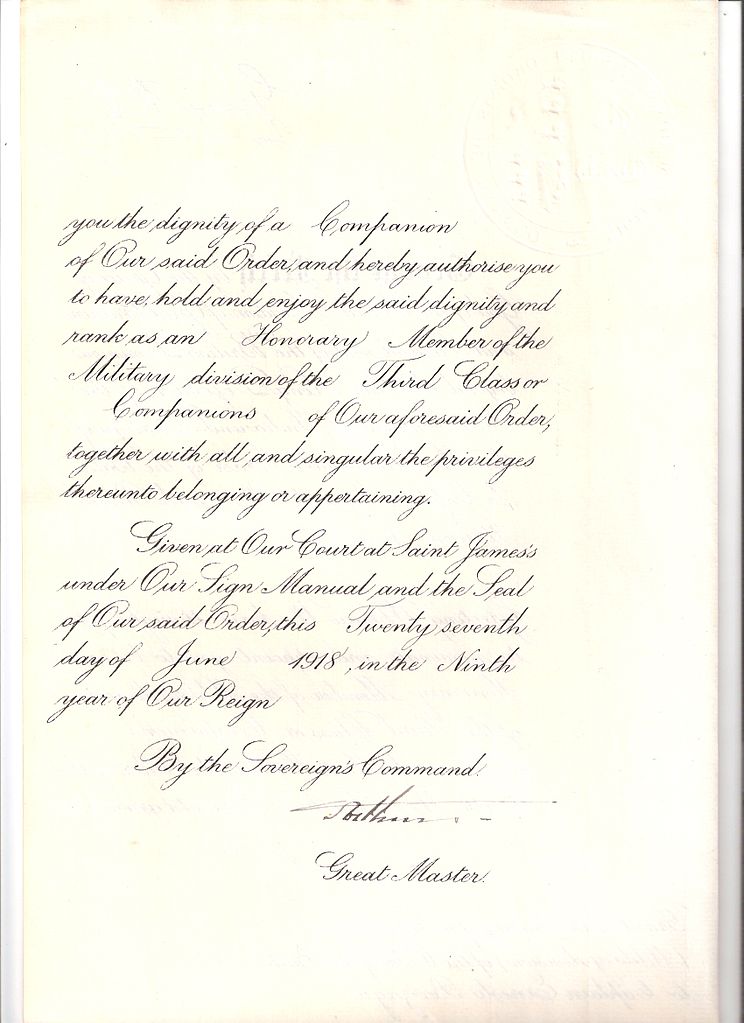 you the dignity of a Companion
of Our said Order, and hereby authorise you
to have, hold and enjoy the said dignity and
rank as an Honorary Member of the
Military division of the Third Class or
Companions of Our aforesaid Order,
together with all and singular the privileges
thereunto belonging or appertaining.
Given at Our Court at Saint James's
under Our Sign Manual and the Seal
of Our said Order, this Twenty seventh
day of June 1918, in the Ninth
year of Our Reign
By the Sovereign's Command.
Arthur
Great Master.